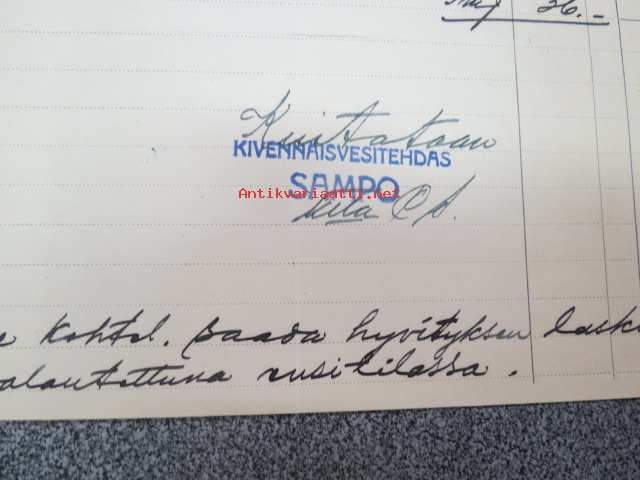 Smk 36.-
Kuitataan
KIVENNÄISVESITEHDAS
SAMPO
Antikvariaatti.net
kohtel. saada hyvityksen
alautettuna uusitilassa.